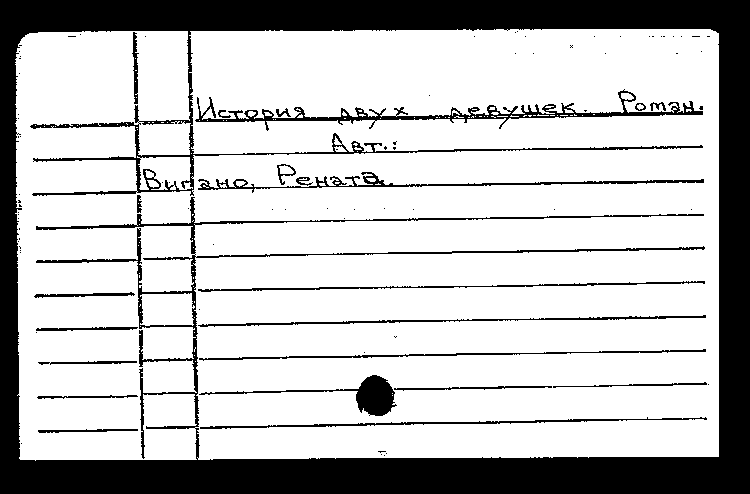 История двух девушек. Роман.
Авт.:
Вигано, Рената.